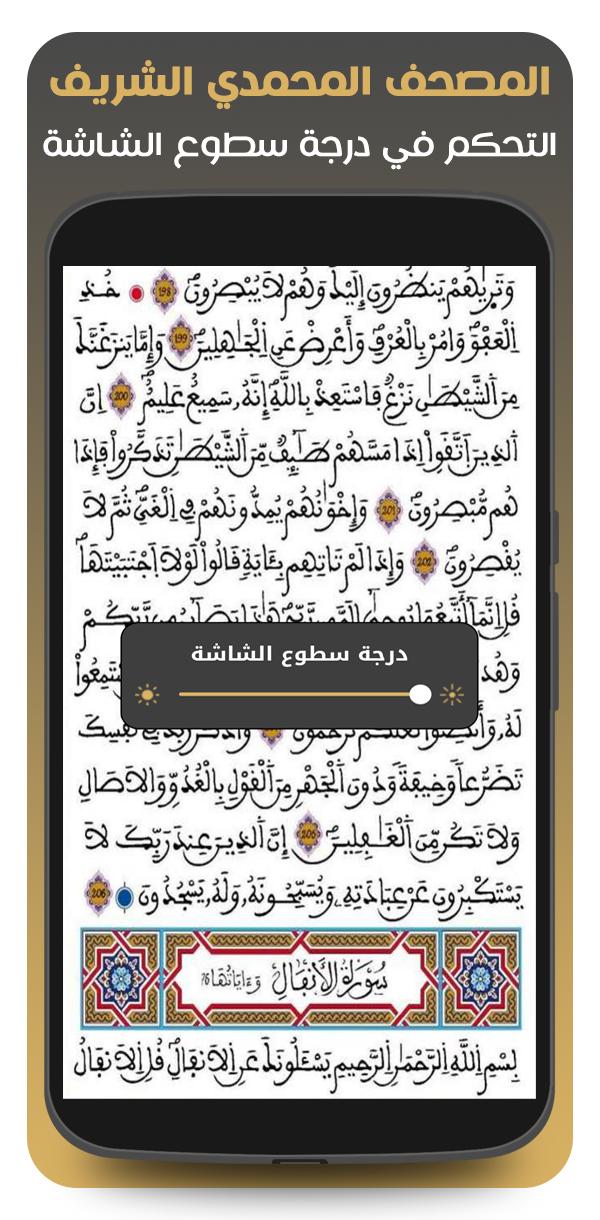 المصحف المحمدي الشريف
التحكم في درجة سطوع الشاشة
وَتَرٜيٰهُمْ يَنظُرُونَ إِلَيْكَ وَهُمْ لَا يُبْصِرُونَۖ 198 خُذِ
اِلْعَفْوَ وَامُرْ بِالْعُرْفِ وَأَعْرِضْ عَنِ اِلْجَٰهِلِينَۖ 199 وَإِمَّا يَنزَغَنَّكَ
مِنَ اَلشَّيْطَٰنِ نَزْغٞ فَاسْتَعِذْ بِاللَّهِۖ إِنَّهُۥ سَمِيعٌ عَلِيمٌۖ 200 اِنَّ
اَلذِينَ اَتَّقَوِاْ اِذَا مَسَّهُمْ طَٰٓئِفٞ مِّنَ اَلشَّيْطَٰنِ تَذَكَّرُواْ فَإِذَا
هُم مُّبْصِرُونَۖ 201 وَإِخْوَٰنُهُمْ يُمِدُّونَهُمْ فِي اِلْغَيِّ ثُمَّ لَا
يُقْصِرُونَۖ 202 وَإِذَا لَمْ تَاتِهِم بِـَٔايَةٖ قَالُواْ لَوْلَا اَجْتَبَيْتَهَاۖ
قُلِ اِنَّمَآ أَتَّبِعُ مَا يُوحٜيٰٓ إِلَيَّ مِن رَّبِّيۖ هَٰذَا بَصَآئِرُ مِن رَّبِّكُمْ
وَهُدٗ
درجة سطوع الشاشة
لَهُۥ وَأَنصِتُواْ لَعَلَّكُمْ تُرْحَمُونَۖ وَاذْكُر رَّبَّكَ فِي نَفْسِكَ
تَضَرُّعاٗ وَخِيفَةٗ وَدُونَ اَلْجَهْرِ مِنَ اَلْقَوْلِ بِالْغُدُوِّ وَالَاصَالِ
وَلَا تَكُن مِّنَ اَلْغَٰفِلِينَۖ 205 إِنَّ اَلذِينَ عِندَ رَبِّكَ لَا
يَسْتَكْبِرُونَ عَنْ عِبَادَتِهِۦ وَيُسَبِّحُونَهُۥ وَلَهُۥ يَسْجُدُونَ 206
سُورَةُ الْأَنفَالِ وَءَايَاتُهَا 76
بِسْمِ اِللَّهِ اِلرَّحْمَٰنِ اِلرَّحِيمِ يَسْـَٔلُونَكَ عَنِ اِلَانفَالِۖ قُلِ اِلَانفَالُ